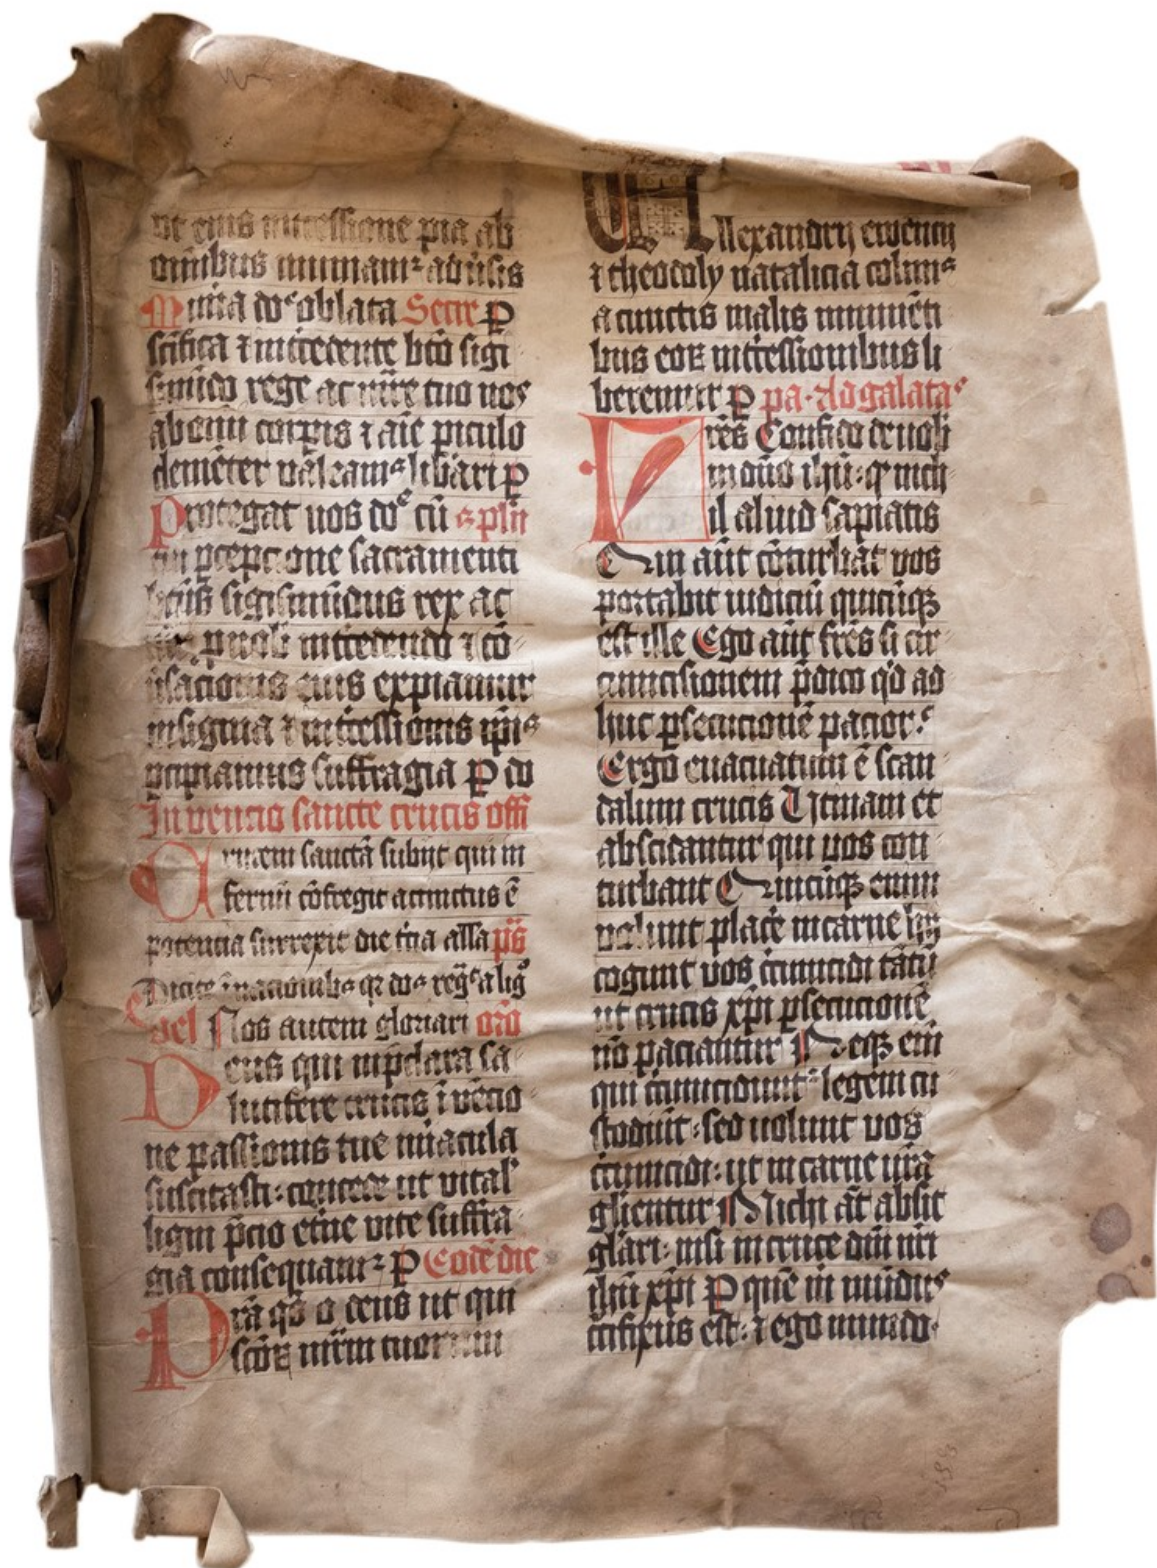 ut eius int̄cessione pia ab
omnibus muniamur aduersis
Mun̄a dn̄e oblata Secre P
sc̄ifica ⁊ int̄cedente bt̄o sigi
smūdo rege ac mr̄e tuo nos
ab om̄i corpis ⁊ aīe p̄iculo
demēter
Protegat nos dn̄e cū s̄plīn
tui p̄cepcione sacramenti
bt̄us sigismūdus rex ac
int̄cedendo ⁊ cō
eius expiamur
insignia ⁊ int̄cessionis ipī
p̄cipiamus suffragia P do
Inuencio sancte crucis offī
Crucem sanctā subijt qui in
fernū cōfregit accinctus ē
potencia surrexit die tc̄ia alla p̄s
Dicite ī nacionibs qr dn̄s regͣ a lig̊
gel Nos autem gloriari or̄o
Deus qui in p̄clara sa
lutifere crucis īvēcio
ne passionis tue mir̄acula
suscitasti : concede ut vital
ligni p̄cio etn̄e vite suffra
gia consequamur P Eodē die
Pr̄a qs o deus ut qui
sc̄oꝝ mr̄m tuorum
Allexandrij ewencij
⁊ theodoly natalicia colimꝰ
a cunctis malis īminēti
bus eoꝝ int̄cessionibus li
beremur P pa. ad galatas
Fr̄es Confido de uob̄
in dn̄o ihū : qr nich
il aliud sapiatis
Qui aūt cōturbat vos
portabit iudiciū quicūqꝫ
est ille Ego aūt fr̄es si cir
cumcisionem p̄dico qd ad
huc p̄secucionē pacior?
Ergo euacuatum ē scan
dalum crucis Utinam et
abscidantur qui vos con
turbant Quicūqꝫ enim
volunt plac̄e in carne hij
cogunt vos c̄cumcidi tātū
ut crucis xp̄i p̄secucionē
nō paciantur Neqꝫ eīn
qui c̄cumciduntꝰ legem cu
stodiūt : sed uolunt vos
c̄cumcidi : ut in carne ur̄a
glīentur Michi āt absit
glāri : nisi in cruce dn̄i nr̄i
ihū xp̄i P quē m̄ mūdus
cc̄ifixus est : ⁊ ego mundo.